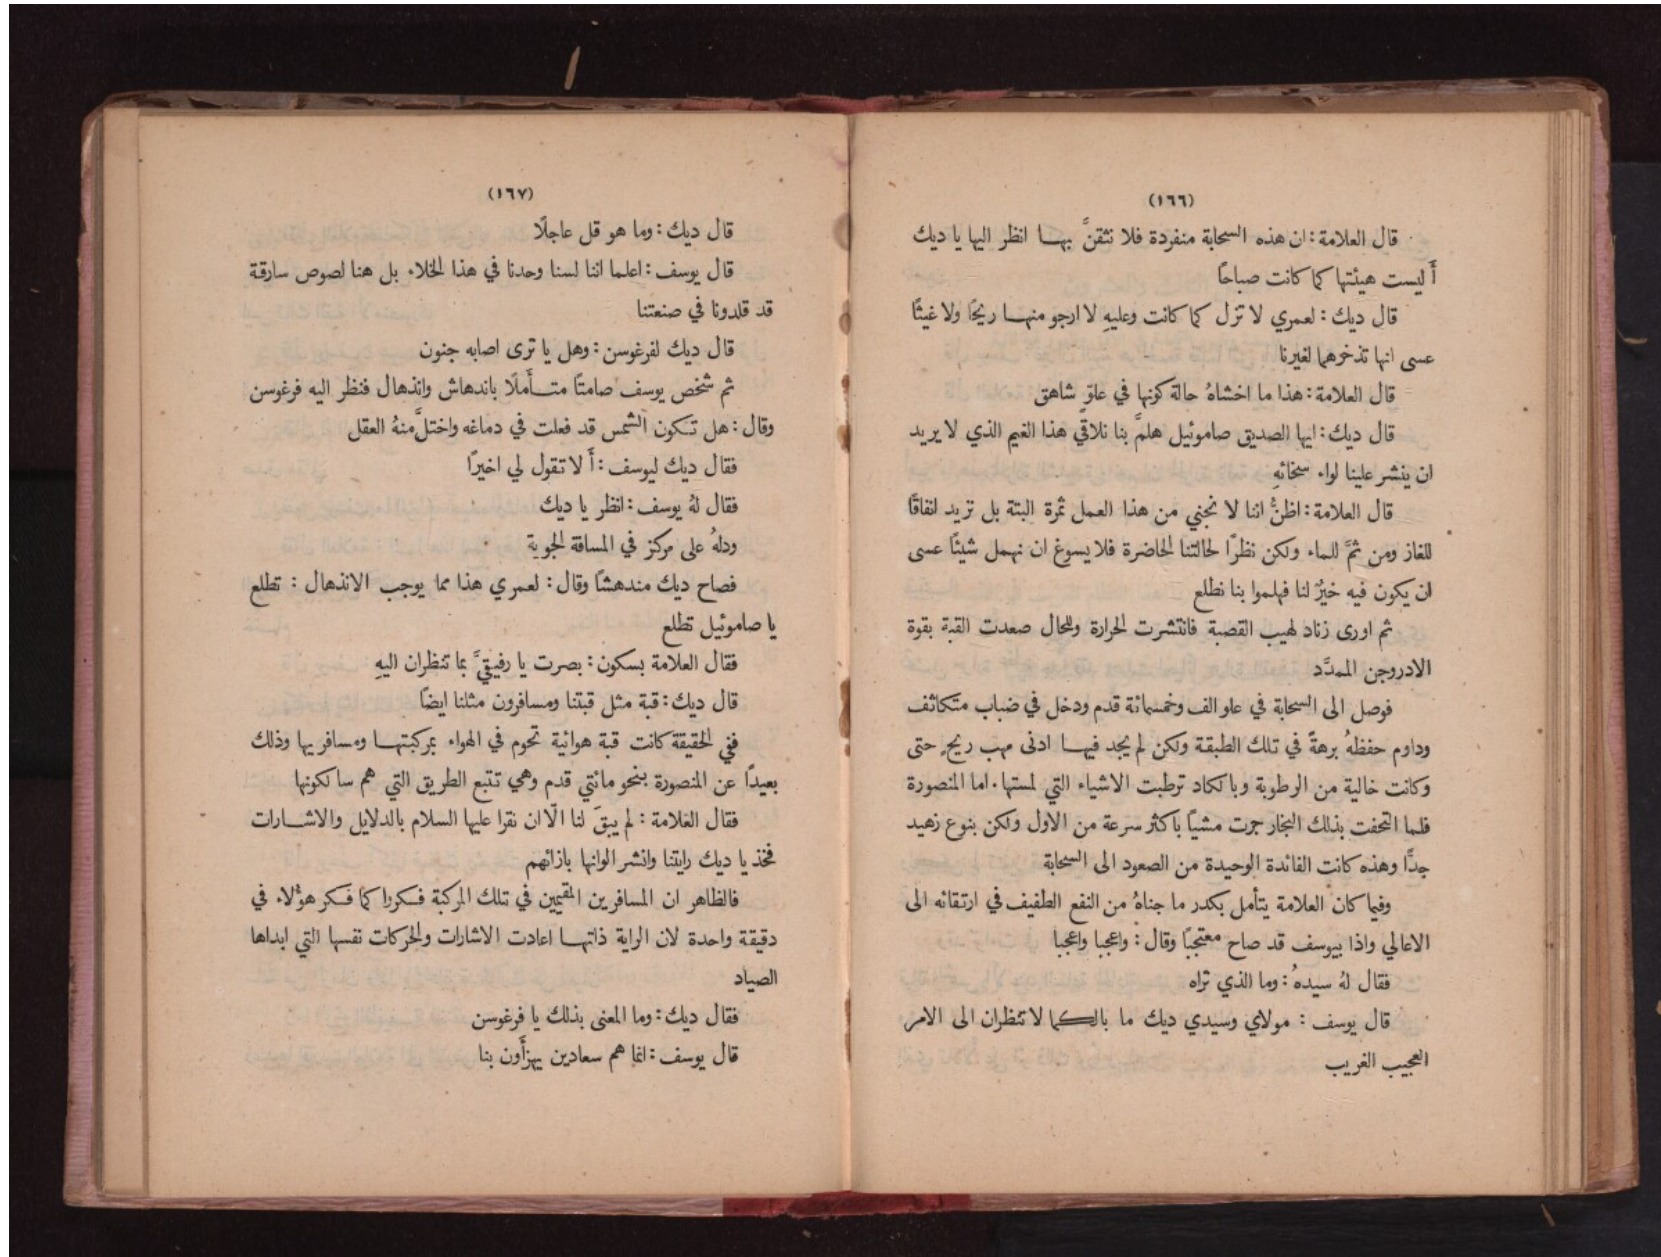 (١٦٦)
قال العلامة : ان هذه السحابة منفردة فلا نثقنَّ بها انظر اليها يا ديك
أَ ليست هيئتها كما كانت صباحًا
قال ديك : لعمري لا تزل كما كانت وعليهِ لا ارجو منها ريحًا ولا غيثًا
عسى انها تذخرهما لغيرنا
قال العلامة : هذا ما اخشاهُ حالة كونها في علوّ شاهق
قال ديك : ايها الصديق صاموئيل هلمَّ بنا نلاقي هذا الغيم الذي لا يريد
ان ينشر علينا لواء سخائهِ
قال العلامة : اظنُّ اننا لا نجني من هذا العمل ثمرة البتة بل نزيد انفاقًا
للغاز ومن ثمَّ للماء ولكن نظرًا لحالتنا الحاضرة فلا يسوغ ان نهمل شيئًا عسى
ان يكون فيه خيرٌ لنا فهلموا بنا نطلع
ثم اورى زناد لهيب القصبة فانتشرت الحرارة وللحال صعدت القبة بقوة
الادروجن الممدَّد
فوصل الى السحابة في علو الف وخمسمائة قدم ودخل في ضباب متكاثف
وداوم حفظهُ برهةً في تلك الطبقة ولكن لم يجد فيها ادنى مهب ريح حتى
وكانت خالية من الرطوبة وبالكاد ترطبت الاشياء التي لمستها . اما المنصورة
فلما التحفت بذلك البخار جرت مشيًا باكثر سرعة من الاول ولكن بنوع زهيد
جدًّا وهذه كانت الفائدة الوحيدة من الصعود الى السحابة
وفيما كان العلامة يتأمل بكدر ما جناهُ من النفع الطفيف في ارتقائه الى
الاعالي واذا بيوسف قد صاح معتجبًا وقال : واعجبا واعجبا
فقال لهُ سيدهُ : وما الذي تراه
قال يوسف : مولاي وسيدي ديك ما بالكما لا تنظران الى الامر
العجيب الغريب
(١٦٧)
قال ديك : وما هو قل عاجلًا
قال يوسف : اعلما اننا لسنا وحدنا في هذا الخلاء بل هنا لصوص سارقة
قد قلدونا في صنعتنا
قال ديك لفرغوسن : وهل يا ترى اصابه جنون
ثم شخص يوسف صامتًا متأَملًا باندهاش وانذهال فنظر اليه فرغوسن
وقال : هل تكون الشمس قد فعلت في دماغه واختلَّ منهُ العقل
فقال ديك ليوسف : أَ لا تقول لي اخيرًا
فقال لهُ يوسف : انظر يا ديك
ودلهُ على مركز في المسافة الجوية
فصاح ديك مندهشًا وقال : لعمري هذا مما يوجب الانذهال : تطلع
يا صاموئيل تطلع
فقال العلامة بسكون : بصرت يا رفيقيَّ بما تنظران اليهِ
قال ديك : قبة مثل قبتنا ومسافرون مثلنا ايضًا
ففي الحقيقة كانت قبة هوائية تحوم في الهواء بمركبتها ومسافريها وذلك
بعيدًا عن المنصورة بنحو مائتي قدم وهي تتبع الطريق التي هم سالكونها
فقال العلامة : لم يبقَ لنا الّا ان نقرا عليها السلام بالدلايل والاشارات
فخذ يا ديك رايتنا وانشر الوانها بازائهم
فالظاهر ان المسافرين المقيمين في تلك المركبة فكروا كما فكر هؤُلاء في
دقيقة واحدة لان الراية ذاتها اعادت الاشارات والحركات نفسها التي ابداها
الصياد
فقال ديك : وما المعنى بذلك يا فرغوسن
قال يوسف : انما هم سعادين يهزأَون بنا